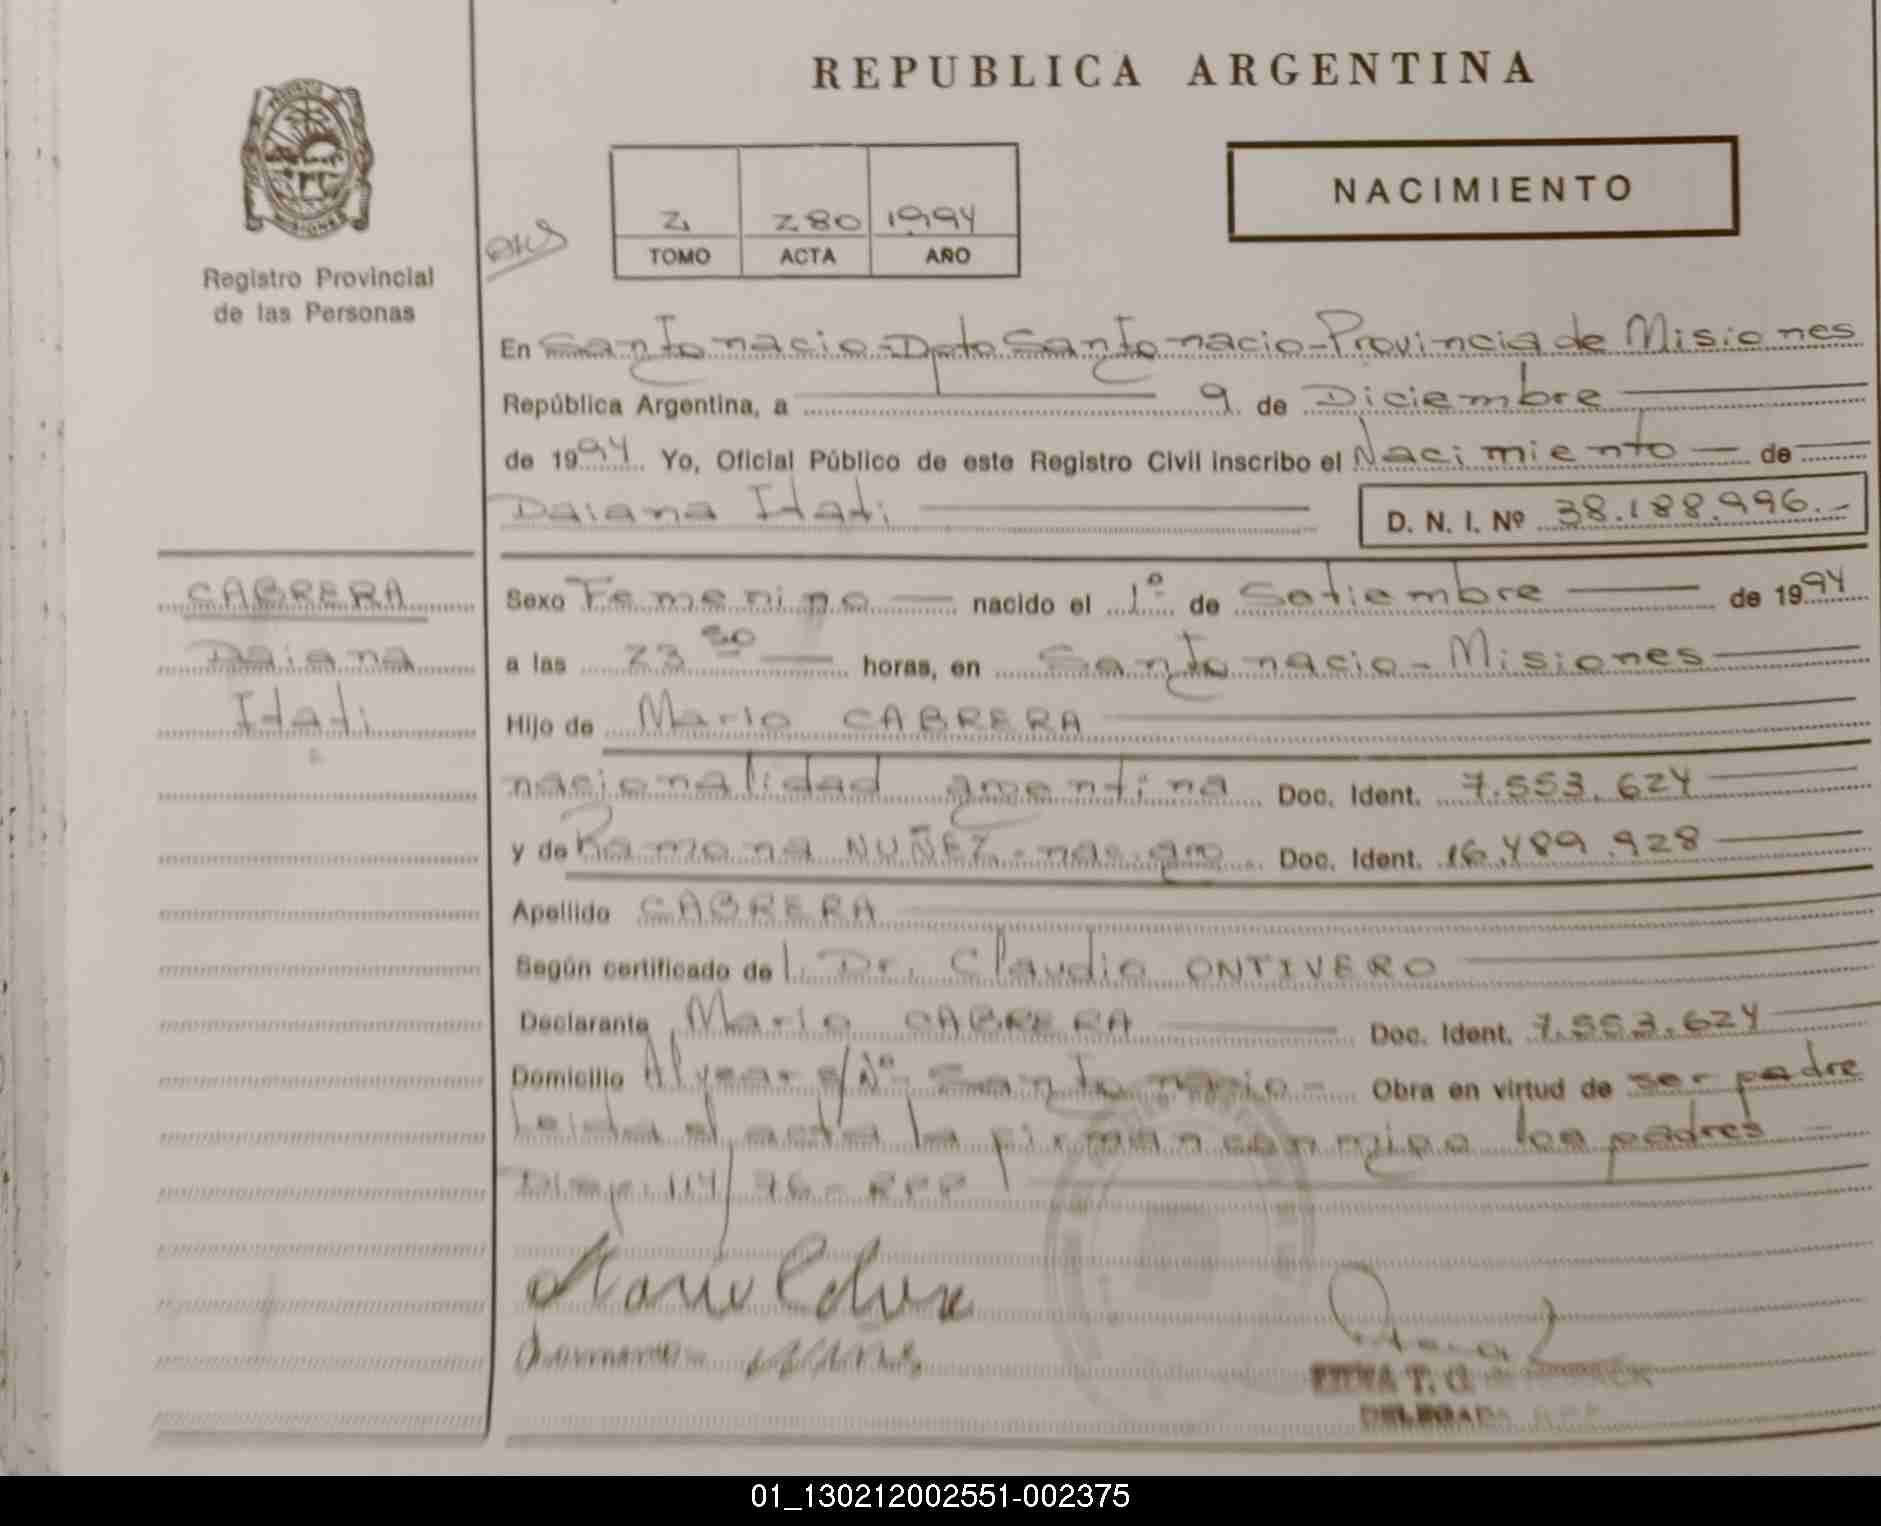 REPUBLICA ARGENTINA
NACIMIENTO
2 280 1994
TOMO ACTA AÑO
Registro Provincial
de las Personas
En San Ignacio - Dpto San Ignacio - Provincia de Misiones
República Argentina, a 9 de Diciembre
de 1994 Yo, Oficial Público de este Registro Civil inscribo el Nacimiento de
Daiana Itati
D. N. I. Nº 38.188.996.-
CABRERA
Daiana
Itati
Sexo Femenino nacido el 1º de Setiembre de 1994
a las 23 horas, en San Ignacio - Misiones
Hijo de Mario CABRERA
nacionalidad argentina Doc. Ident. 7.553.624
y de Ramona NUÑEZ - nac. arg Doc. Ident. 16.489.928
Apellido CABRERA
Según certificado de l Dr. Claudio ONTIVERO
Declarante Mario CABRERA Doc. Ident. 7.553.624
Domicilio Alvear s/Nº - San Ignacio - Obra en virtud de ser padre
Leida el acta la firman conmigo los padres
Disp. 114/76 - RPP
DELEGADA
01_130212002551-002375